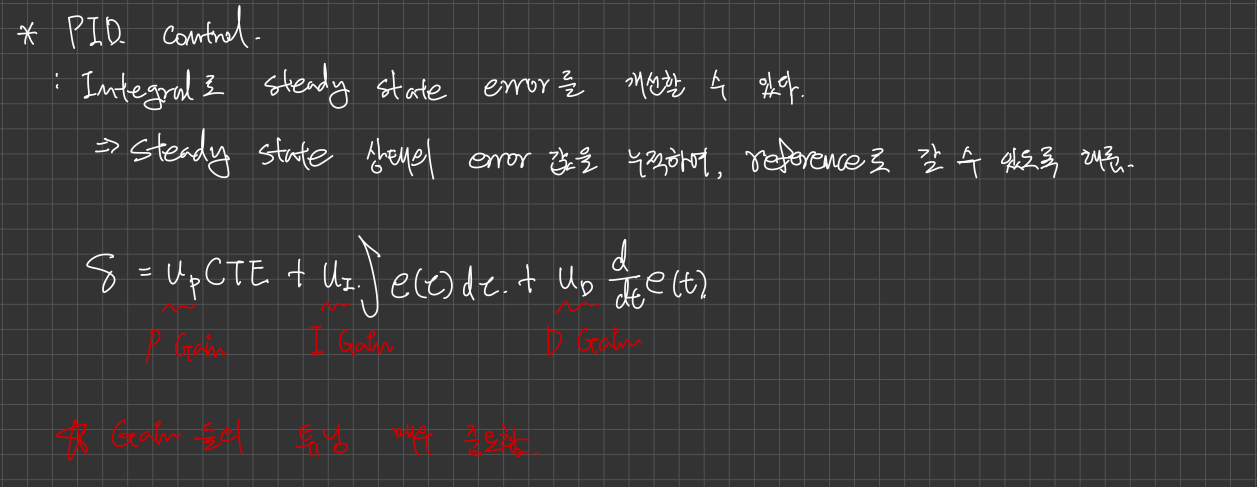 * PID control.
: Integral로 steady state error를 개선할 수 있다.
⇒ steady state 상태의 error 값을 누적하여, reference로 갈 수 있도록 해줌.
δ = u_p CTE + u_I ∫ e(t) dt + u_D d/dt e(t)
P Gain I Gain D Gain
※ Gain 들의 튜닝 매우 중요함.